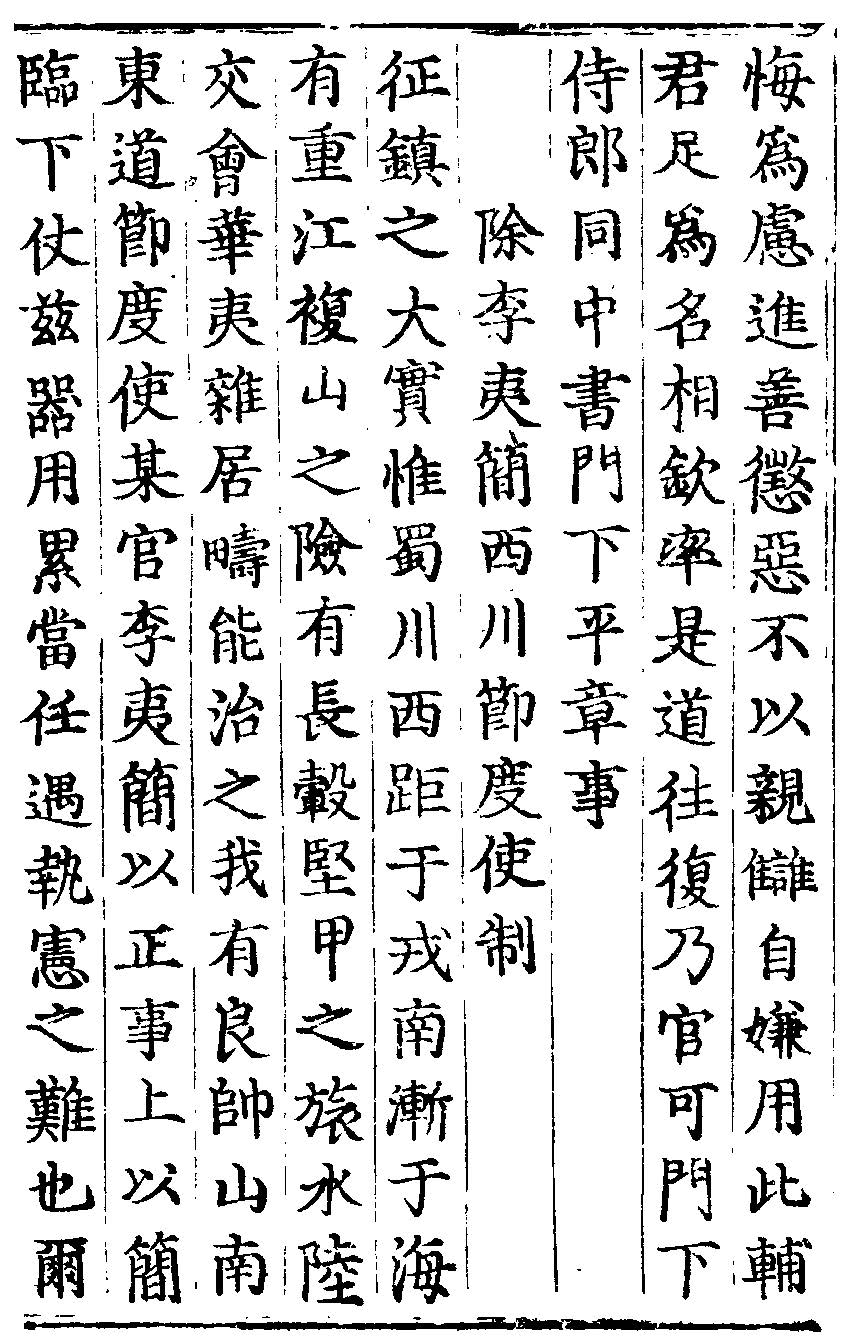 悔爲慮進善懲惡不以親讎自嫌用此輔
君足爲名相欽率是道往復乃官可門下
侍郎同中書門下平章事
除李夷簡西川節度使制
征鎮之大實惟蜀川西距于戎南漸于海
有重江複山之險有長轂堅甲之旅水陸
交會華夷雜居疇能治之我有良帥山南
東道節度使某官李夷簡以正事上以簡
臨下仗茲器用累當任遇執憲之難也爾